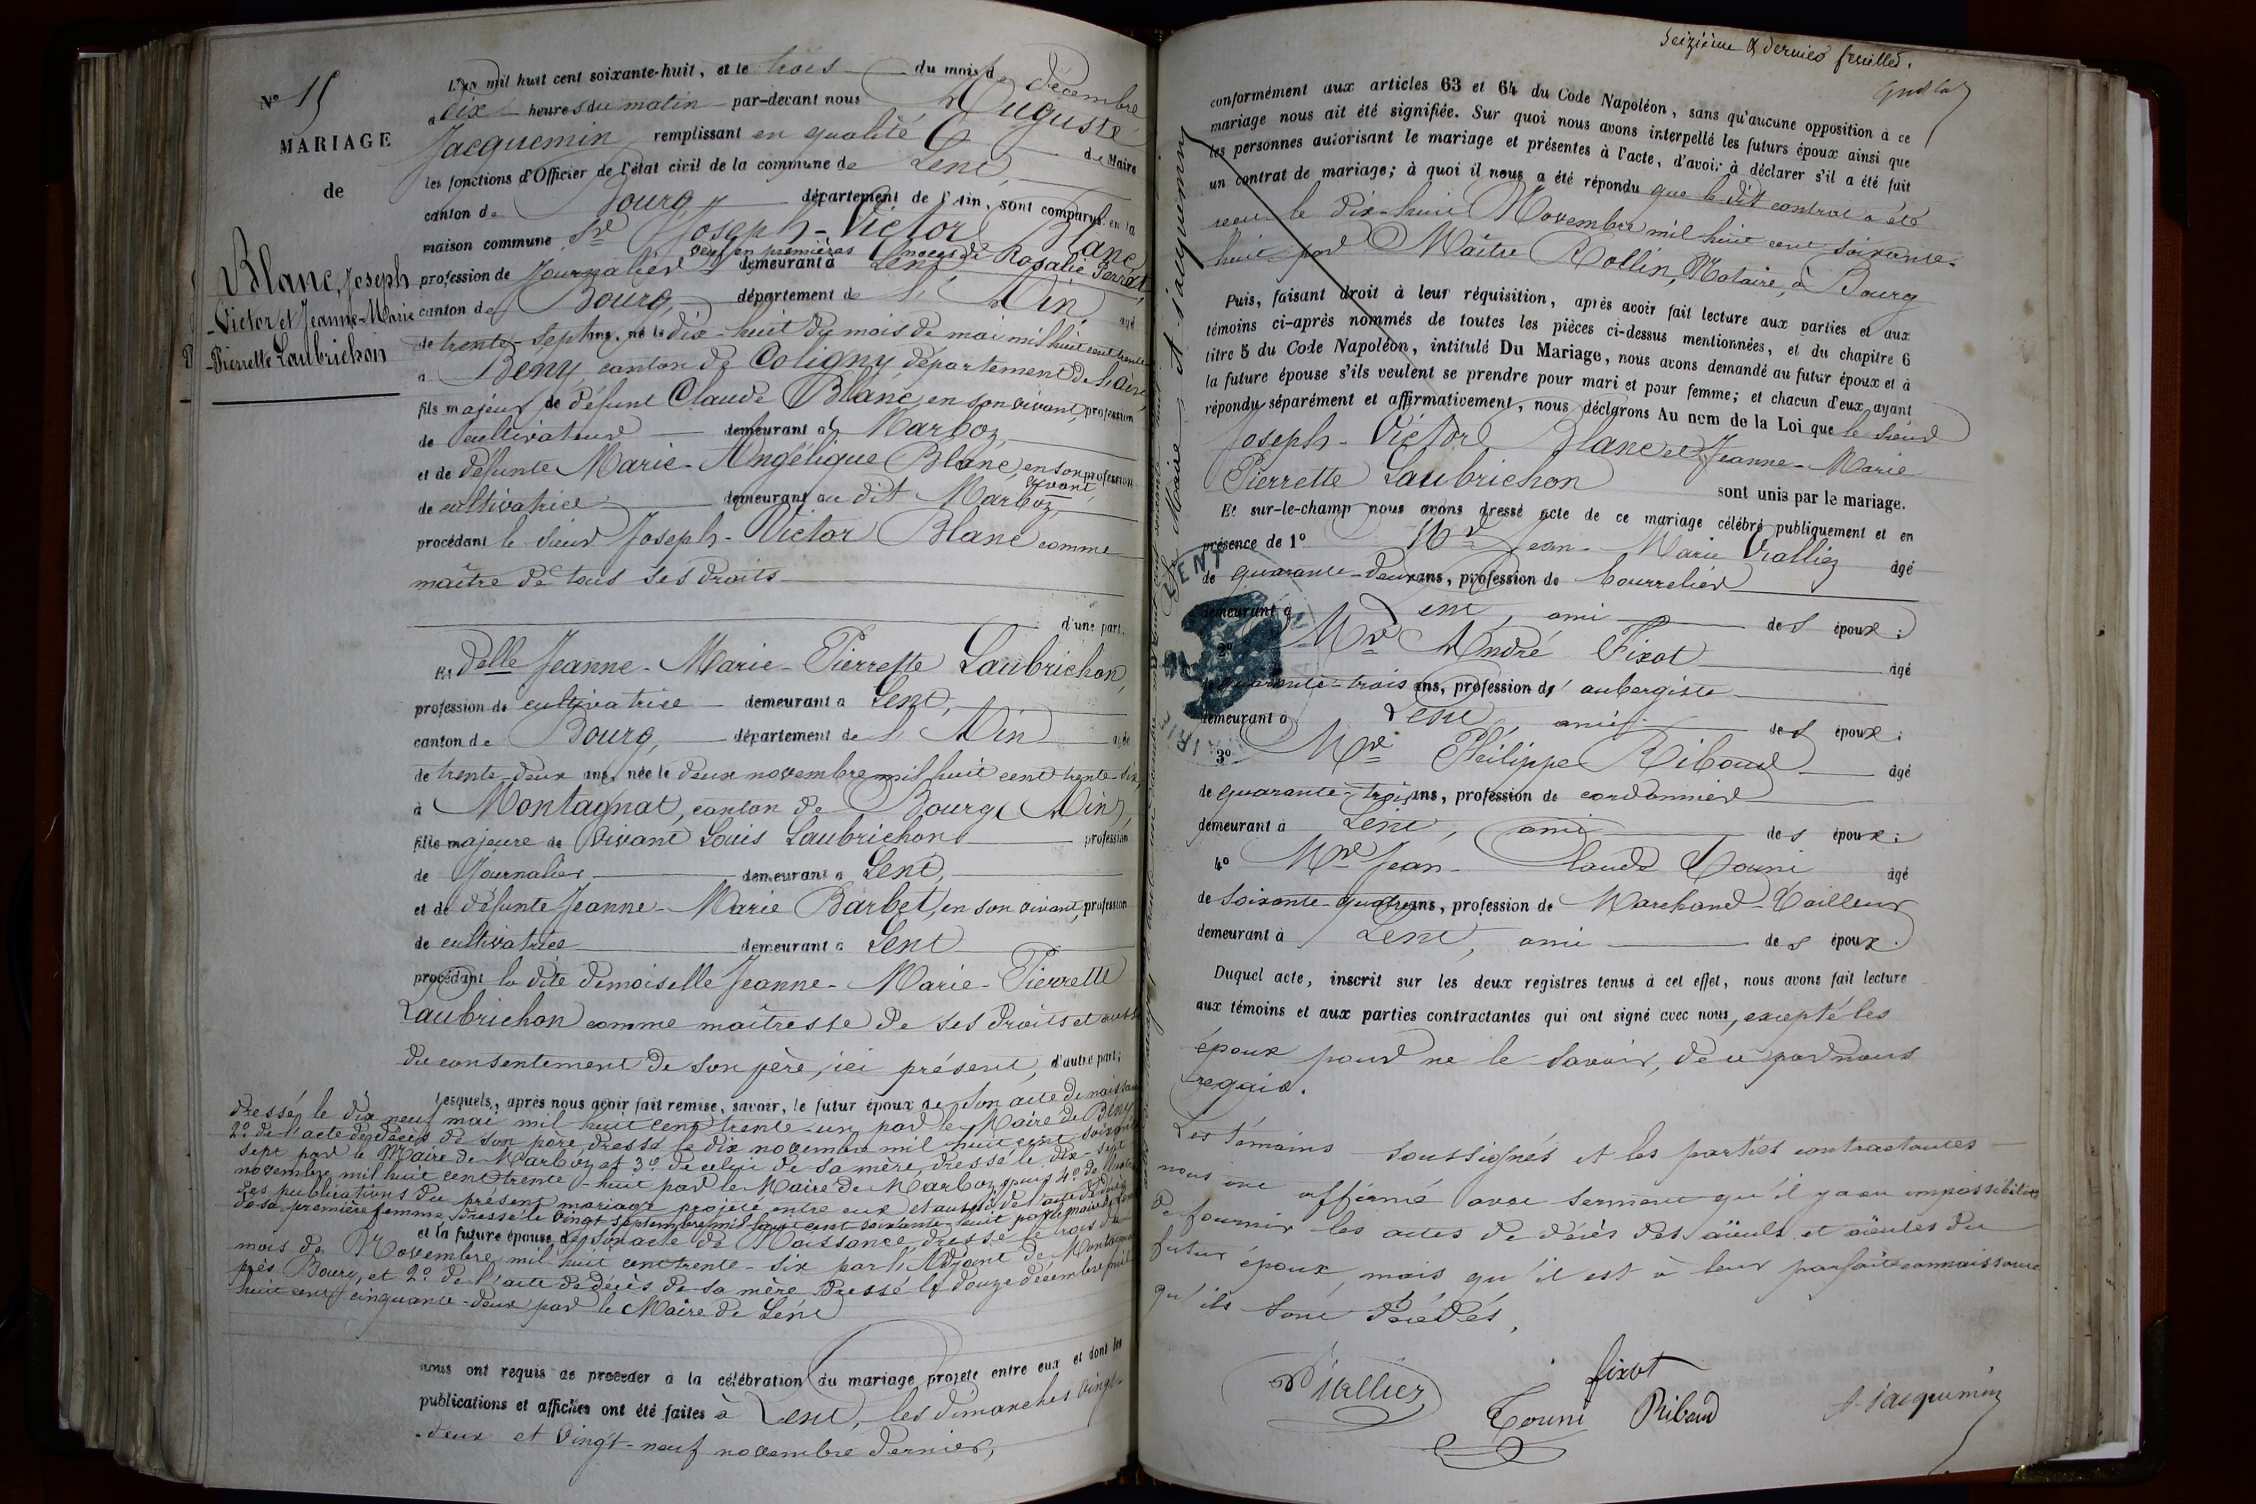 N° 15
MARIAGE
de
Blanc, Joseph
-Victor et Jeanne-Marie
-Pierrette Laubrichon
L'an mil huit cent soixante-huit, et le trois du mois de décembre
à dix heures du matin par-devant nous Auguste
Jacquemin remplissant en qualité de Maire
les fonctions d'Officier de l'état civil de la commune de Lent,
canton de Bourg, département de l'Ain, sont comparus en la
maison commune Sr Joseph-Victor Blanc
veuf en premières noces de Rosalie Perret,
profession de Journalier demeurant à Lent,
canton de Bourg, département de l'Ain, âgé
de trente-sept ans, né le dix-huit du mois de mai mil huit cent trente
à Beny, canton de Coligny département de l'Ain,
fils majeur de défunt Claude Blanc, en son vivant, profession
de cultivateur demeurant à Marboz,
et de défunte Marie-Angélique Blanc, en son vivant, profession
de cultivatrice demeurant au dit Marboz,
procédant le sieur Joseph-Victor Blanc comme
maître de tous ses droits
d'une part,
Et Delle Jeanne-Marie-Pierrette Laubrichon,
profession de cultivatrice demeurant à Lent,
canton de Bourg, département de l'Ain âgée
de trente-deux ans, née le deux novembre mil huit cent trente-six,
à Montagnat, canton de Bourg (Ain),
fille majeure de vivant Louis Laubrichon profession
de Journalier demeurant à Lent,
et de défunte Jeanne-Marie Barbet, en son vivant, profession
de cultivatrice demeurant à Lent
procédant la dite demoiselle Jeanne-Marie-Pierrette
Laubrichon comme maîtresse de ses droits et aussi
du consentement de son père, ici présent, d'autre part;
Lesquels, après nous avoir fait remise, savoir, le futur époux de son acte de naissance
dressé le dix neuf mai mil huit cent trente-un par le Maire de Bény
2° de l'acte de décès de son père, dressé le dix novembre mil huit cent soixante
sept par le Maire de Marboz et 3° de celui de sa mère, dressé le dix-sept
novembre mil huit cent trente-huit par le Maire de Marboz
les publications du présent mariage projeté entre eux et aussi de l'acte de décès
de sa première femme dressé le vingt septembre mil huit cent soixante-huit par le maire de
et la future épouse, de son acte de Naissance, dressé le trois du
mois de Novembre mil huit cent trente-six par l'Adjoint de Montagnat
près Bourg, et 2° de l'acte de décès de sa mère dressé le douze décembre mil
huit cent cinquante-deux par le Maire de Lent
nous ont requis de procéder à la célébration du mariage projeté entre eux et dont les
publications et affiches ont été faites à Lent, les dimanches vingt-
-deux et vingt-neuf novembre dernier,
Seizième & dernier feuillet.
conformément aux articles 63 et 64 du Code Napoléon, sans qu'aucune opposition à ce
mariage nous ait été signifiée. Sur quoi nous avons interpellé les futurs époux ainsi que
les personnes autorisant le mariage et présentes à l'acte, d'avoir à déclarer s'il a été fait
un contrat de mariage; à quoi il nous a été répondu que le dit contrat a été
reçu le dix-huit Novembre mil huit cent soixante-
huit par Maître Rollin, Notaire, à Bourg
Puis, faisant droit à leur réquisition, après avoir fait lecture aux parties et aux
témoins ci-après nommés de toutes les pièces ci-dessus mentionnées, et du chapitre 6
titre 5 du Code Napoléon, intitulé Du Mariage, nous avons demandé au futur époux et à
la future épouse s'ils veulent se prendre pour mari et pour femme; et chacun d'eux ayant
répondu séparément et affirmativement, nous déclarons Au nom de la Loi que le sieur
Joseph-Victor Blanc et Jeanne-Marie
Pierrette Laubrichon sont unis par le mariage.
Et sur-le-champ nous avons dressé acte de ce mariage célébré publiquement et en
présence de 1° Mr Jean-Marie Viallier âgé
de quarante-deux ans, profession de bourrelier
demeurant à Lent, ami des époux;
2° Mr André Fixot âgé
de quarante-trois ans, profession d'aubergiste
demeurant à Lent, ami des époux;
3° Mr Philippe Riboud âgé
de quarante-trois ans, profession de cordonnier
demeurant à Lent, ami des époux;
4° Mr Jean-Claude Tourni âgé
de soixante-quatre ans, profession de Marchand-Tailleur
demeurant à Lent, ami des époux.
Duquel acte, inscrit sur les deux registres tenus à cet effet, nous avons fait lecture
aux témoins et aux parties contractantes qui ont signé avec nous, excepté les
époux pour ne le savoir, de ce par nous
requis.
Les témoins soussignés et les parties contractantes
nous ont affirmé avec serment qu'il y a eu impossibilité
de fournir les actes de décès des aïeuls et aïeules du
futur époux, mais qu'il est à leur parfaite connaissance
qu'ils sont décédés.
Viallier
fixot
Tourni Ribaud A. Jacquemin